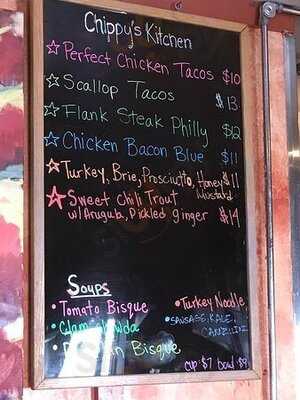 Chippy's Kitchen
Perfect Chicken Tacos $10
Scallop Tacos $13
Flank Steak Philly $12
Chicken Bacon Blue $11
Turkey, Brie, Prosciutto, Honey $11
Mustard
Sweet Chili Trout
w/ Arugula, Pickled ginger $14
Soups
• Tomato Bisque
• Turkey Noodle
• Bisque
• SAUSAGE, KALE,
CUP $7 bowl